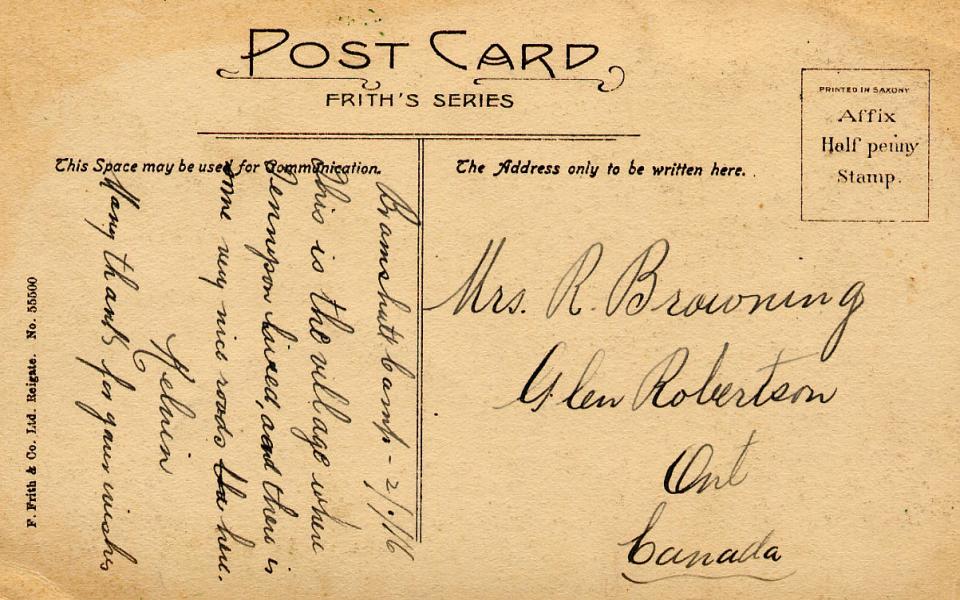 POST CARD
FRITH'S SERIES
PRINTED IN SAXONY
Affix
Half penny
Stamp.
This Space may be used for Communication.
The Address only to be written here.
Bramshott Camp -
This is the village where
Tennyson lived, and there is
some very nice roads here.
Many thanks for your wishes
Mrs. R. Browning
Glen Robertson
Ont
Canada
F. Frith & Co. Ltd. Reigate. No. 55500